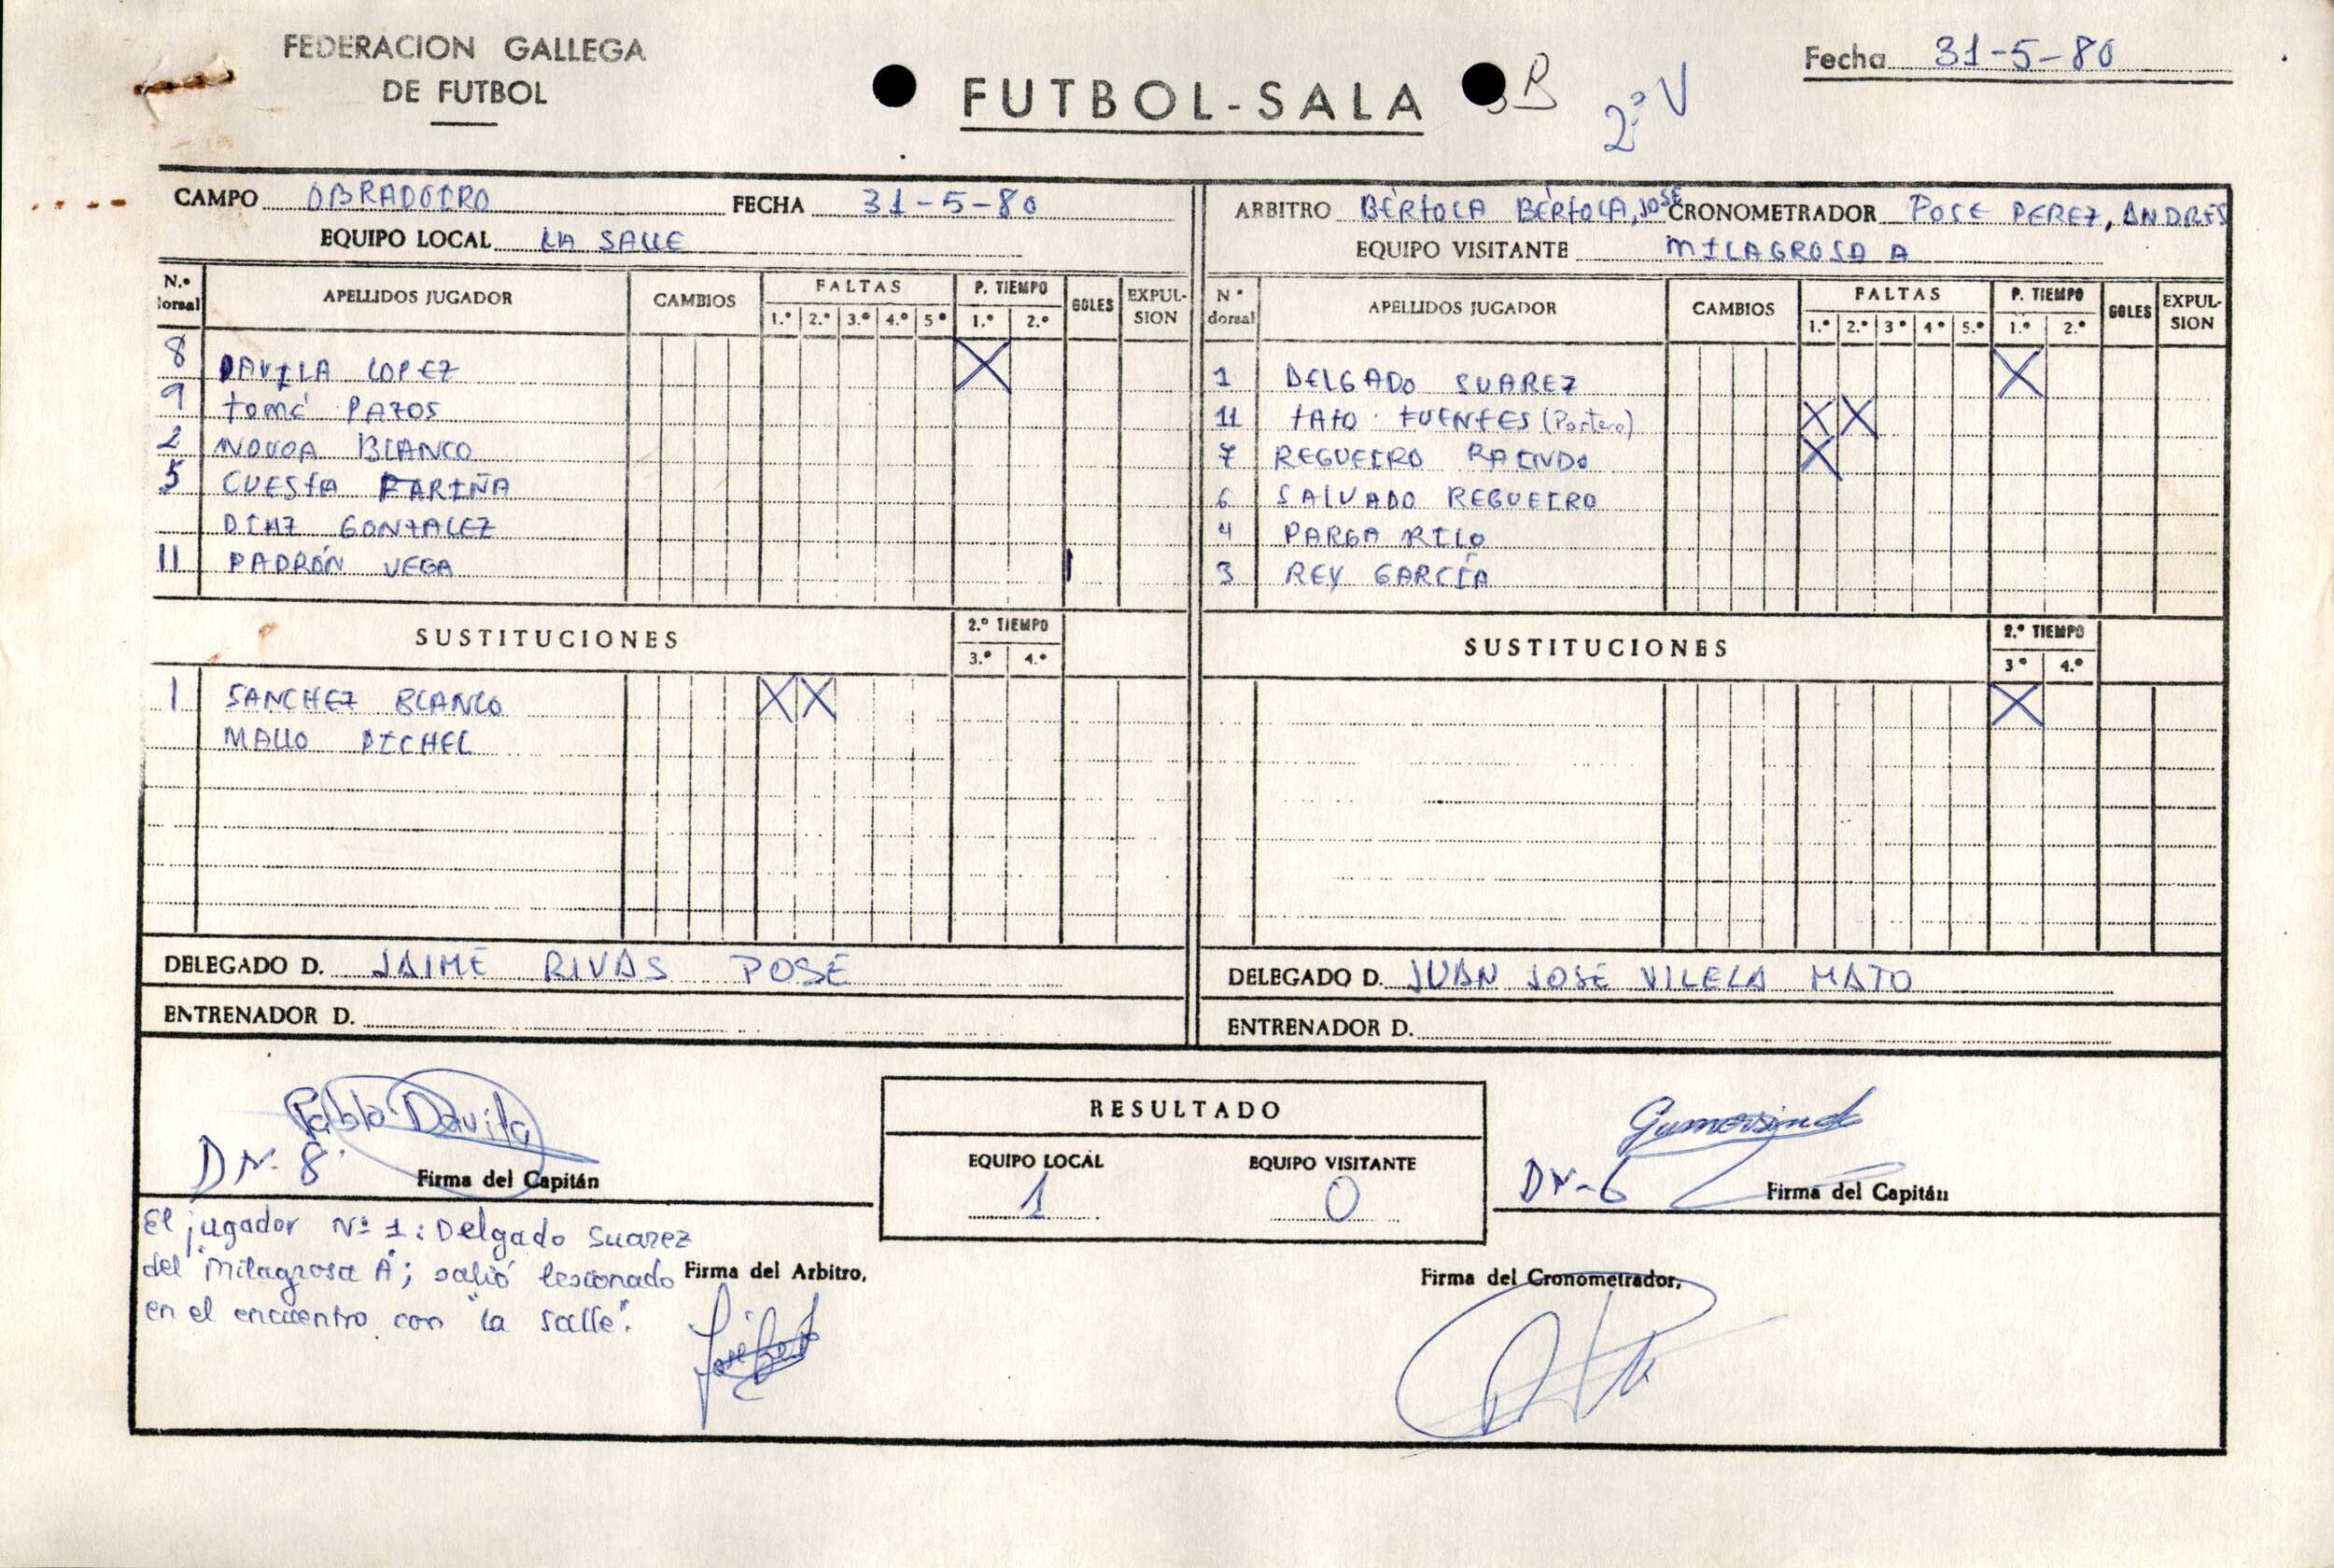 FEDERACION GALLEGA
DE FUTBOL
FUTBOL-SALA
B
2ª V
Fecha 31-5-80
CAMPO OBRADOIRO FECHA 31-5-80
EQUIPO LOCAL LA SALLE
N.º dorsal APELLIDOS JUGADOR CAMBIOS FALTAS P. TIEMPO GOLES EXPULSION
1.º 2.º 3.º 4.º 5º 1.º 2.º
8 DAVILA LOPEZ X
9 TOMÉ PAZOS
2 NOVOA BLANCO
5 CUESTA FARIÑA
DIAZ GONZALEZ
11 PADRÓN VEGA 1
SUSTITUCIONES 2.º TIEMPO
3.º 4.º
1 SANCHEZ BLANCO X X
MALLO PICHEL
DELEGADO D. JAIME RIVAS POSE
ENTRENADOR D.
ARBITRO BÉRTOLA BÉRTOLA, JOSÉ CRONOMETRADOR POSE PEREZ, ANDRES
EQUIPO VISITANTE MILAGROSA A
Nº dorsal APELLIDOS JUGADOR CAMBIOS FALTAS P. TIEMPO GOLES EXPULSION
1.º 2.º 3º 4º 5.º 1.º 2.º
1 DELGADO SUAREZ X
11 TATO FUENTES (Portero) X X
7 REGUEIRO RAINDO X
6 SALVADO REGUEIRO
4 PARGA RILO
3 REY GARCÍA
SUSTITUCIONES 2.º TIEMPO
3º 4.º
X
DELEGADO D. JUAN JOSÉ VILELA MATO
ENTRENADOR D.
Pablo Davila
DN-8
Firma del Capitán
RESULTADO
EQUIPO LOCAL EQUIPO VISITANTE
1 0
Gumersindo
DN-6
Firma del Capitán
El jugador Nº 1: Delgado Suarez
del "Milagrosa A"; salió lesionado
en el encuentro con "La Salle".
Firma del Arbitro,
Firma del Cronometrador,